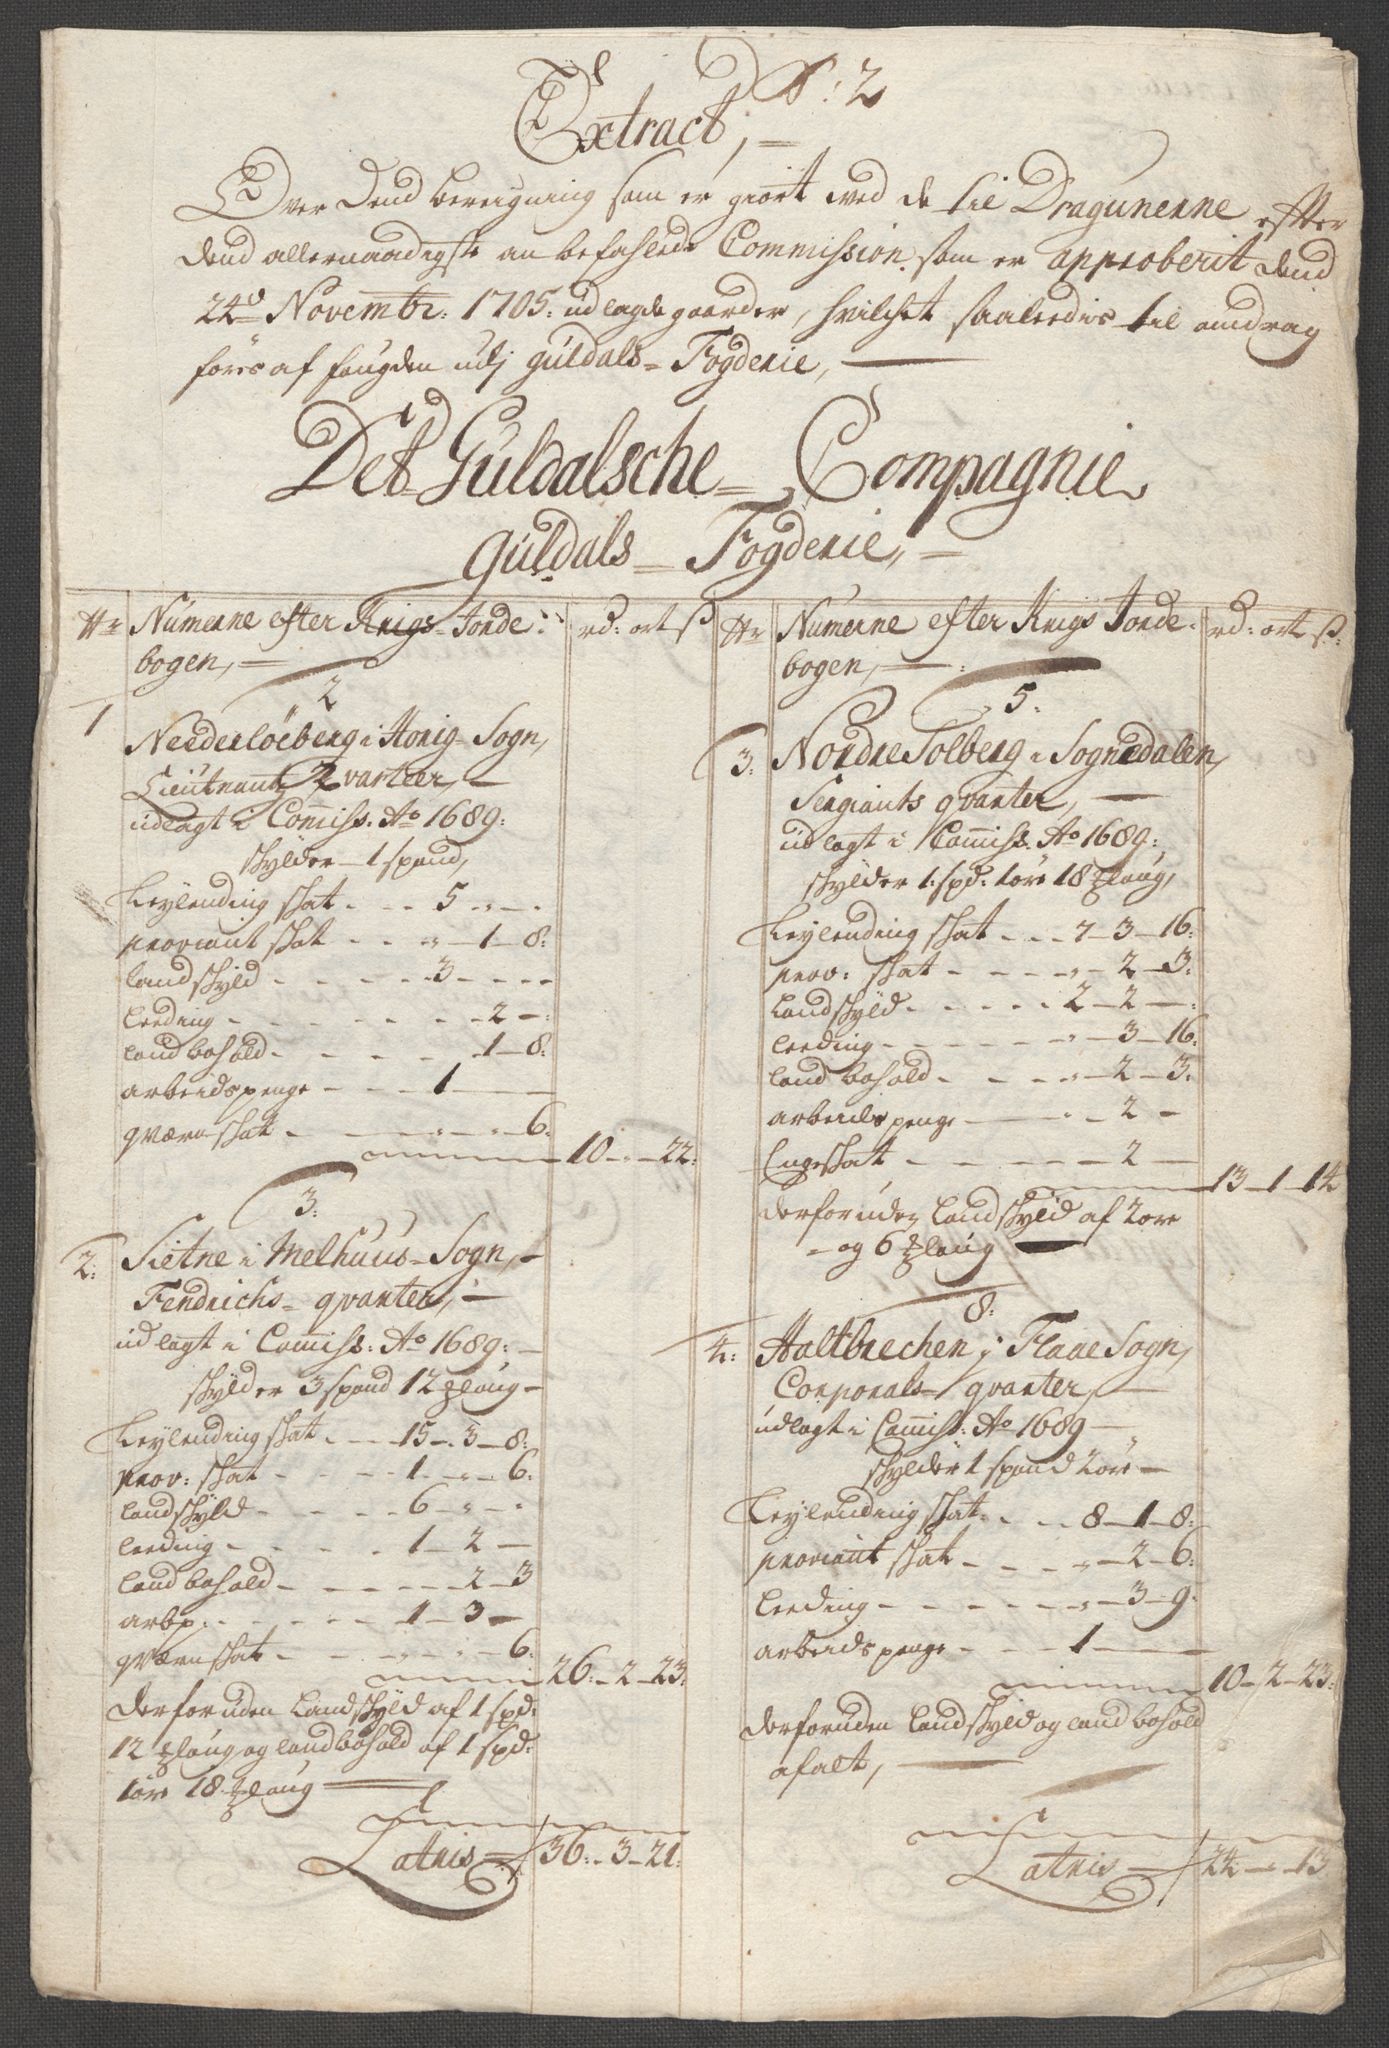 N: 2
Extract,
Over dend bereigning som er giort med de til Dragunerne efter
dend allernaadigste anbefahlede Commission som er approberit dend
24d Novembr: 1705: udlagde gaarder, hvilchet saaledis til andrag
föris af fougden udj guldals Fogderie,
Det Guldalsche Compagnie
Guldals Fogderie,
Nr Numerne efter Krigs Jorde: rd: ort ß
bogen,
2
1 Neederlöeberg i Horrig Sogn,
Lieutnants Qvarteer,
udlagt i Commiss: Ao 1689:
skylder 1 spand,
Leylending skat 5 " "
proviant skat " 1 8:
landskyld 3
leeding 2
landbohold 1 8:
arbeidspenge 1
qværnskat " " 6: 10 " 22:
3:
2: Sietne i Melhuus Sogn,
Fendrichs qvarter,
udlagt i Commiss: Ao 1689:
skylder 3 spand 12 mlaug
Leylending skat 15 3 8:
prov: skat 1 " 6:
landskyld 6 " "
leeding 1 2
landbohold 2 3
arbp: 1 3
qværnskat " " 6: 26: 2 23:
derforuden landskyld af 1 spd:
12 mlaug og landbohold af 1 spd:
1 öre 18 mlaug
Latris 36: 3 21:
Nr Numerne efter Krigs Jorde: rd: ort ß:
bogen,
5:
3: Nordre Solberg i Sognedalen,
Sergiants qvarter,
udlagt i Commiss: Ao 1689:
skylder 1: spd: 1 öre 18 mlaug,
Leylending skat 7 3 16:
prov: skat " 2 3:
landskyld 2 2
leeding " 3 16:
landbohold " 2 3:
arbeidspenge " 2
Engeskat 2 13 1 14
derforuden landskyld af 2 öre
og 6 mlaug
8:
4: Haltbrechen i Flaae Sogn,
Corporals qvarter,
udlagt i Commiss: Ao 1689
skylder 1 spand 2 öre
Leylending skat 8 1 8:
proviant skat " 2 6:
leeding " 3 9:
arbeidspenge 1 10 2 23:
derforuden landskyld og landbohold
af alt,
Latris 24 " 13